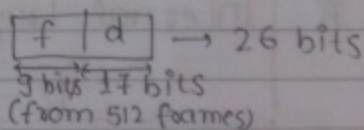 f | d → 26 bits
9 bits 17 bits
(from 512 frames)